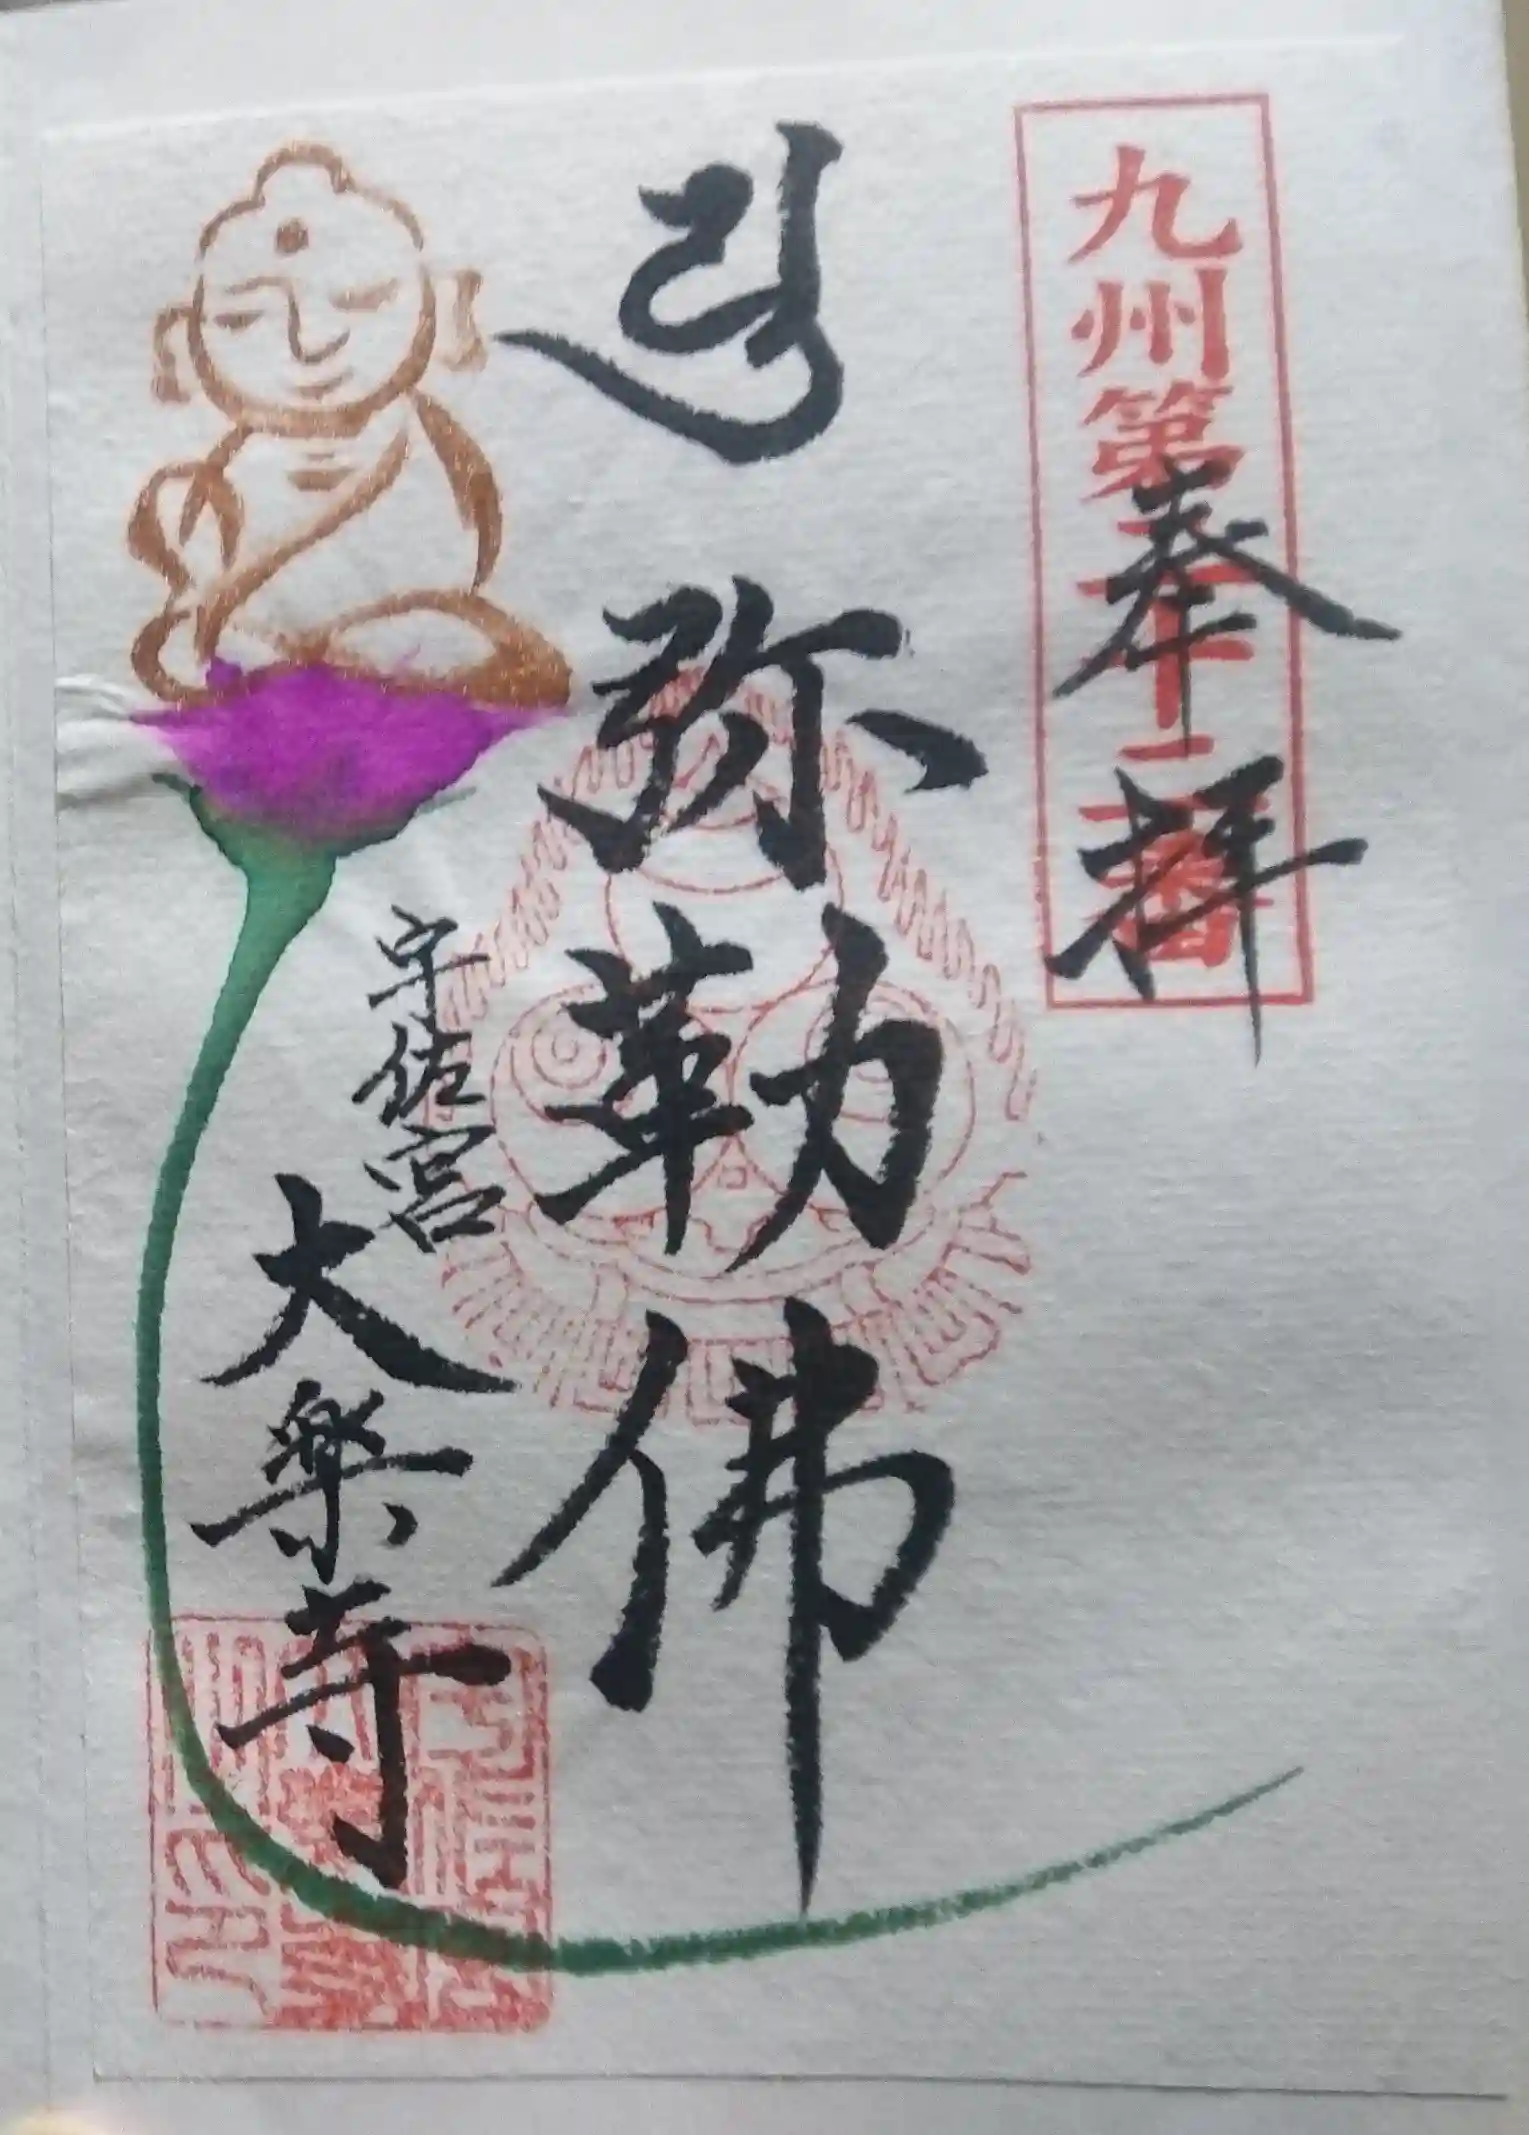 九州第二十二番
奉拝
弥勒佛
宇佐宮
大楽寺